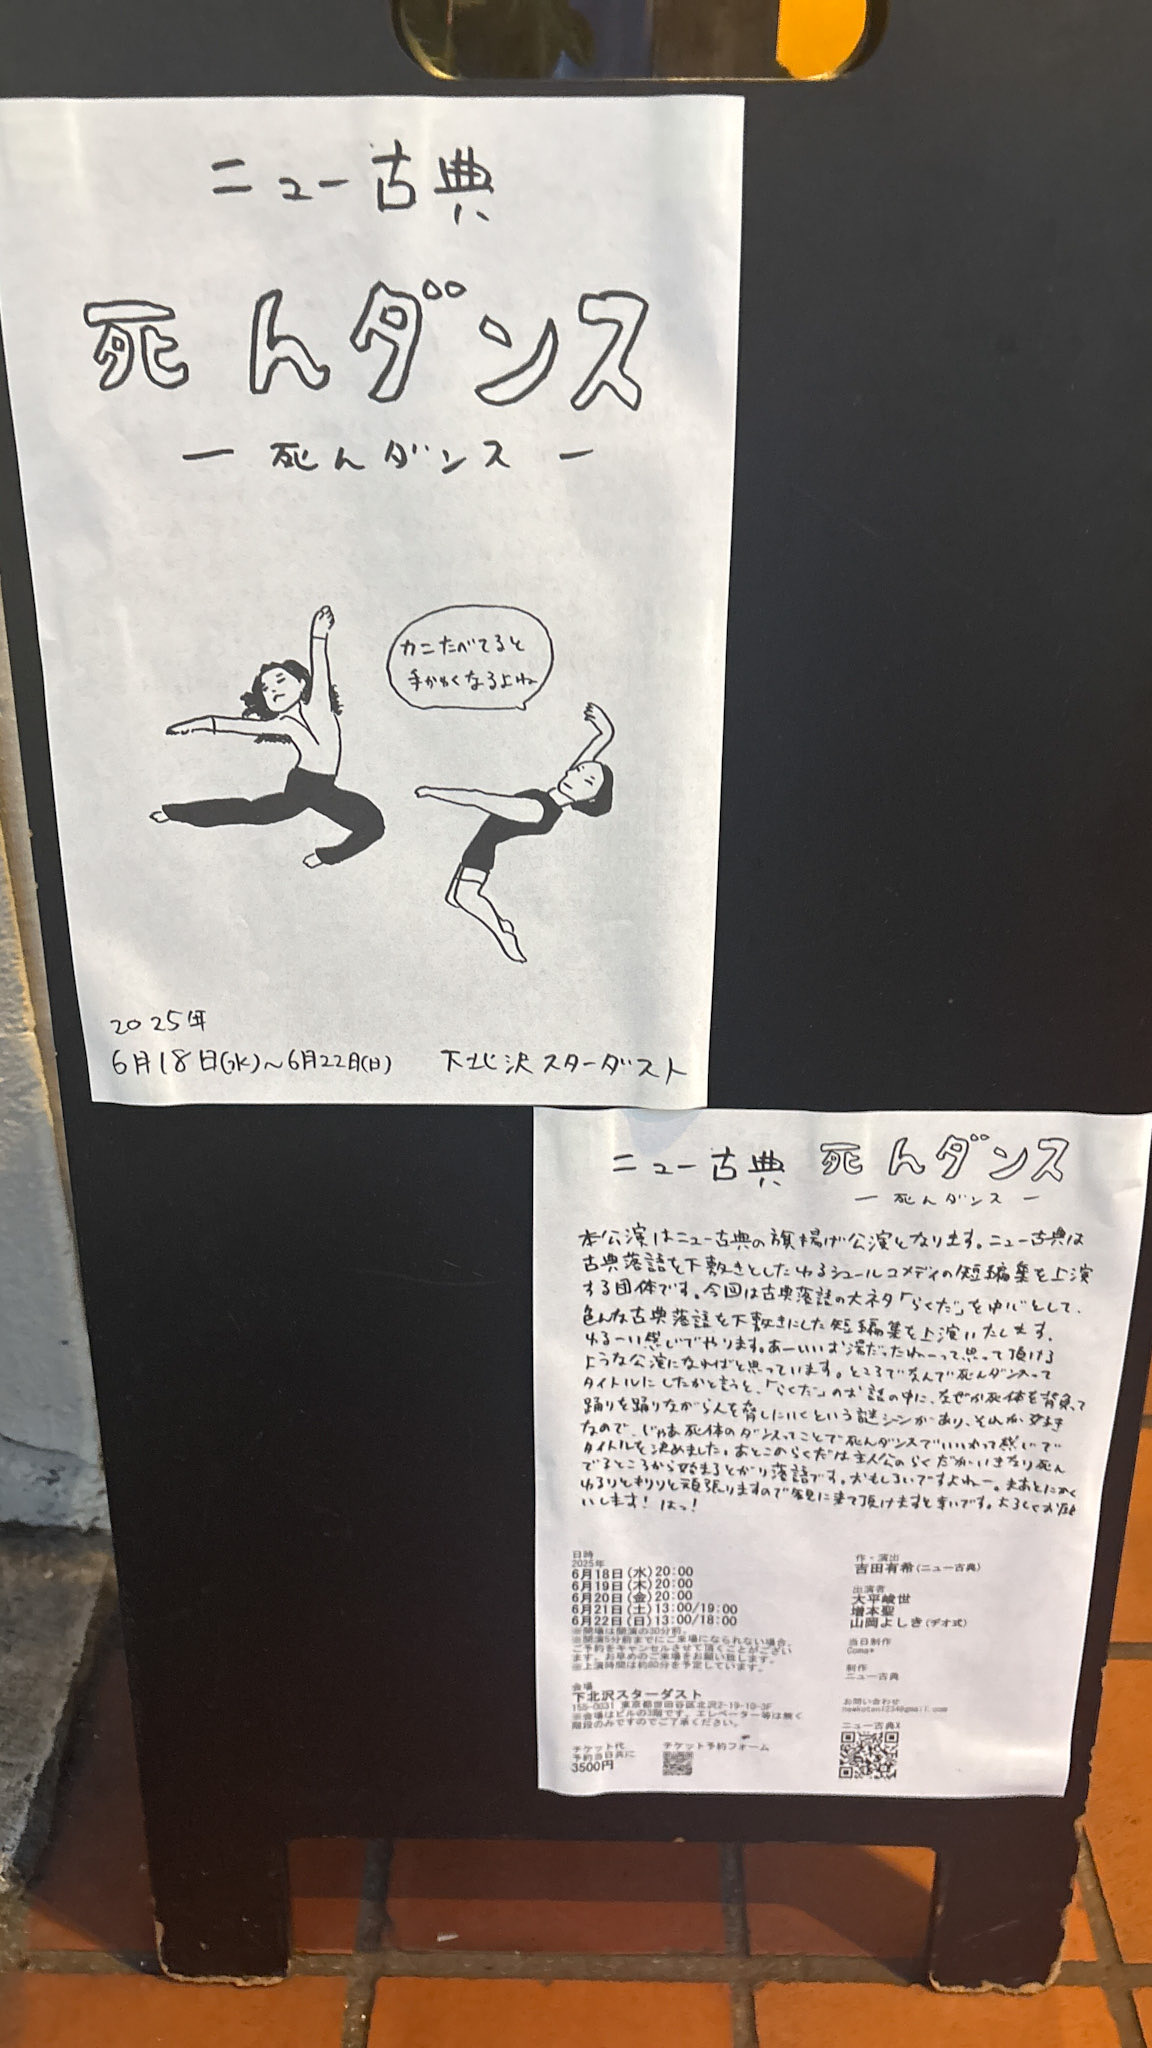 ニュー古典
死んダンス
― 死んダンス ―
カニたべてると
手かゆくなるよね
2025年
6月18日(水)～6月22日(日) 下北沢スターダスト
ニュー古典 死んダンス
― 死んダンス ―
本公演はニュー古典の旗揚げ公演となります。ニュー古典は
古典落語を下敷きとしたゆるシュールコメディの短編集を上演
する団体です。今回は古典落語の大ネタ「らくだ」を中心として、
色んな古典落語を下敷きにした短編集を上演いたします。
ゆるーい感じでやります。あーいいお湯だったわーって思って頂ける
ような公演になればと思っています。ところでなんで死んダンスって
タイトルにしたかと言うと、「らくだ」のお話の中に、なぜか死体を背負って
踊りを踊りながら人を脅しにいくという謎シーンがあり、それが好き
なので、じゃあ死体のダンスってことで死んダンスでいいかって感じで
タイトルを決めました。あとこのらくだは主人公のらくだがいきなり死ん
でるところから始まるとがり落語です。おもしろいですよねー。まあとにかく
ゆるりときりりと頑張りますので観に来て頂けますと幸いです。よろしくお願
いします！ はっ！
日時
2025年
6月18日(水)20:00
6月19日(木)20:00
6月20日(金)20:00
6月21日(土)13:00/19:00
6月22日(日)13:00/18:00
※開場は開演の30分前。
※開演5分前までにご来場になられない場合、
ご予約をキャンセルさせて頂くことがござい
ます。お早めのご来場をお願い致します。
※上演時間は約80分を予定しています。
会場
下北沢スターダスト
155-0031 東京都世田谷区北沢2-19-10-3F
※会場はビルの3階です。エレベーター等は無く
階段のみですのでご了承ください。
チケット代
予約当日共に
3500円
チケット予約フォーム
作・演出
吉田有希(ニュー古典)
出演者
大平峻世
増本聖
山岡よしき(デオ式)
当日制作
Coma*
制作
ニュー古典
お問い合わせ
newkoten1234@gmail.com
ニュー古典X